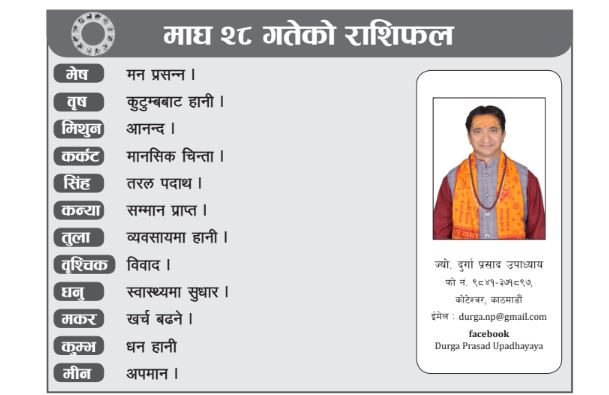 माघ २८ गतेको राशिफल
मेष मन प्रसन्न ।
वृष कुटुम्बबाट हानी ।
मिथुन आनन्द ।
कर्कट मानसिक चिन्ता ।
सिंह तरल पदाथ ।
कन्या सम्मान प्राप्त ।
तुला व्यवसायमा हानी ।
वृश्चिक विवाद ।
धनु स्वास्थ्यमा सुधार ।
मकर खर्च बढने ।
कुम्भ धन हानी
मीन अपमान ।
ज्यो. दुर्गा प्रसाद उपाध्याय
फो नं. ९८४१-३७१८९७,
कोटेश्वर, काठमाडौं
ईमेल : durga.np@gmail.com
facebook
Durga Prasad Upadhayaya